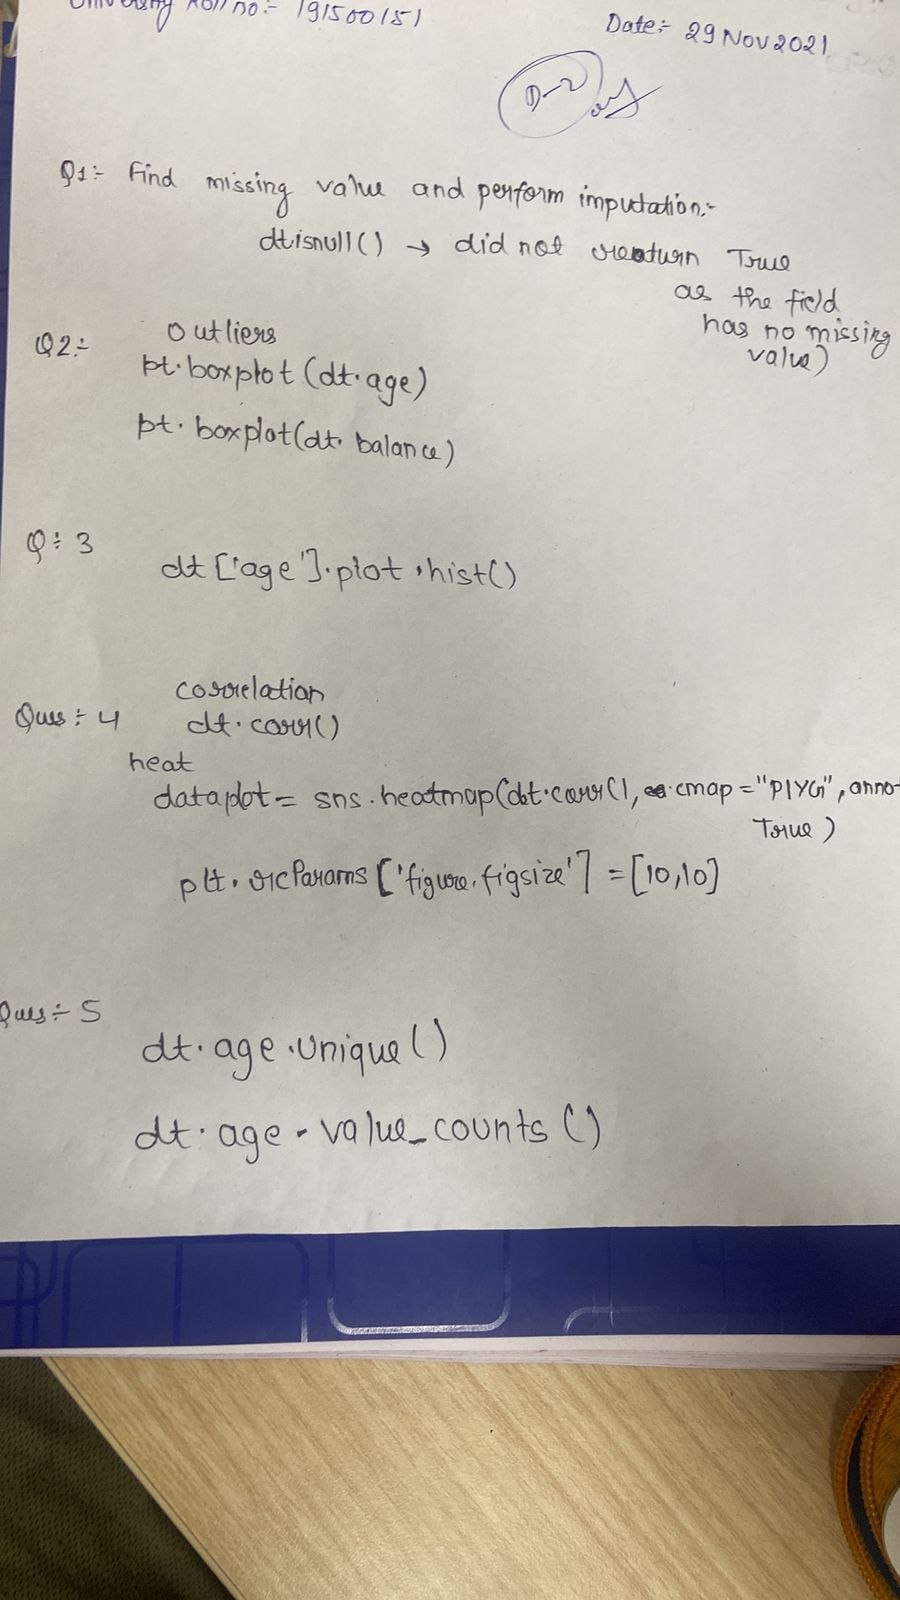 University Roll no:- 191500151
Date:- 29 Nov 2021
D-2
Q1:- Find missing value and perform imputation:-
dt.isnull() → did not return True
as the field
has no missing
value)
Q2:- Outliers
pt.boxplot(dt.age)
pt.boxplot(dt.balance)
Q÷3
dt['age'].plot.hist()
correlation
Ques÷4 dt.corr()
heat
dataplot = sns.heatmap(dt.corr(), cmap="PIYG", anno
True)
plt.rcParams['figure.figsize'] = [10,10]
Ques÷5
dt.age.unique()
dt.age.value_counts()